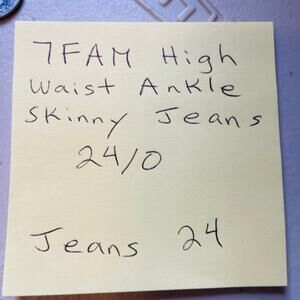 7FAM High
Waist Ankle
Skinny Jeans
24/0
Jeans 24